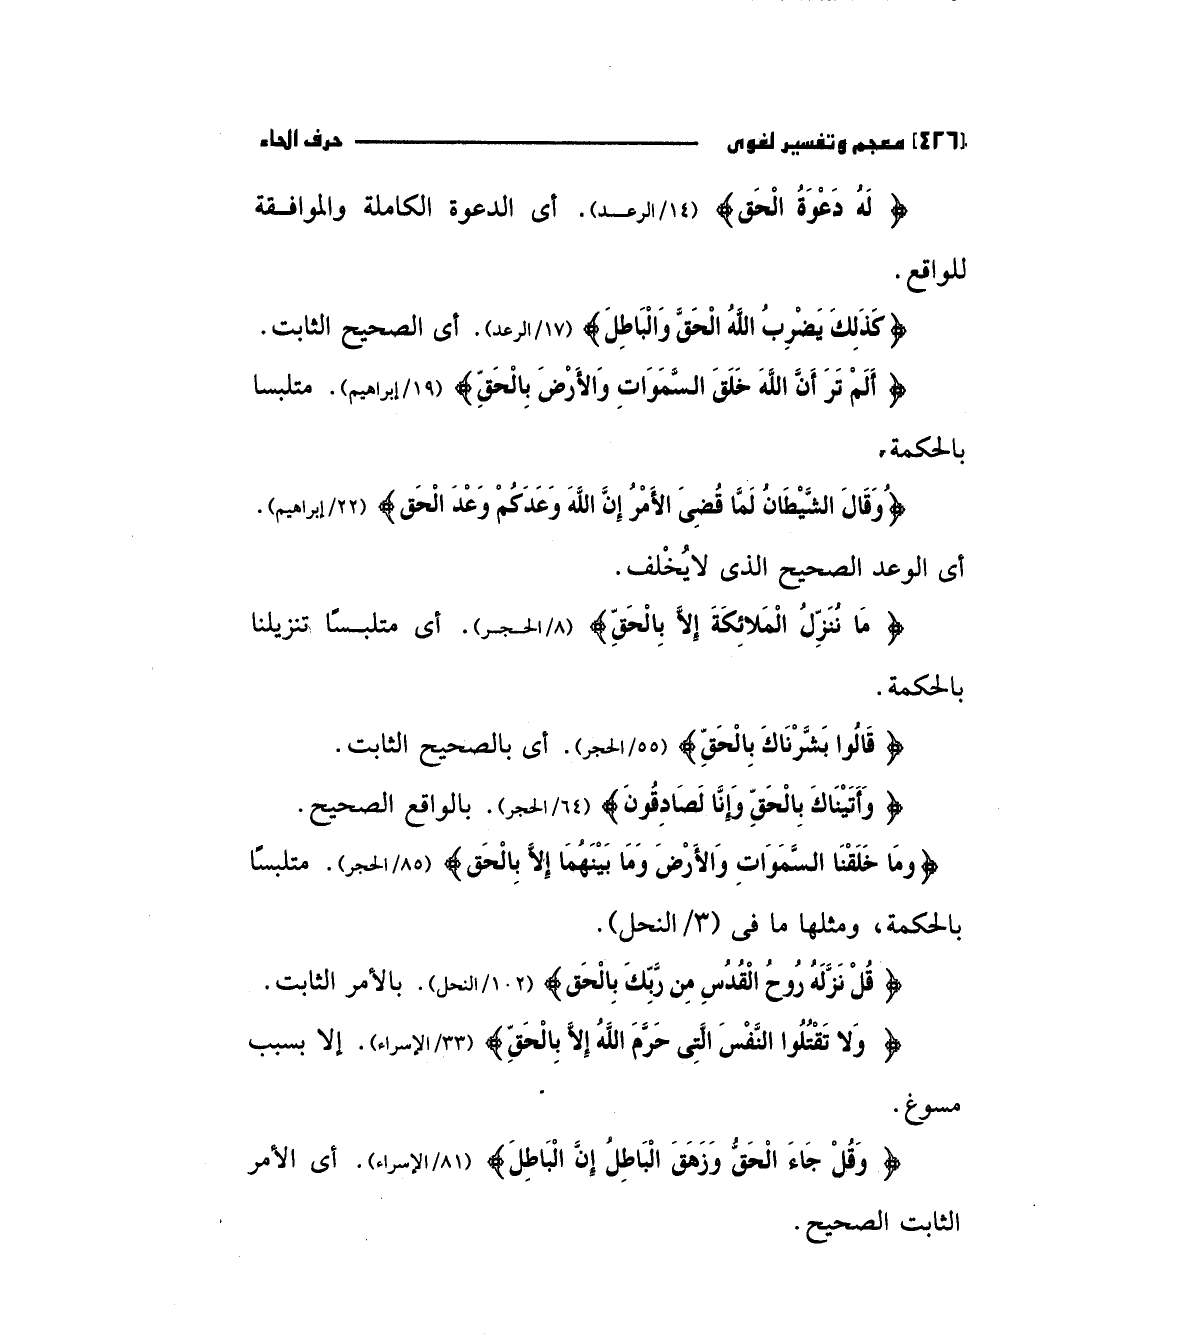 [٤٢٦] معجم وتفسير لغوى حرف الحاء
﴿ لَهُ دَعْوَةُ الْحَق﴾ (١٤/الرعـــد). أى الدعوة الكاملة والموافـقة
للواقع.
﴿كَذَلِكَ يَضْرِبُ اللَّهُ الْحَقَّ وَالْبَاطِلَ﴾ (١٧/الرعد). أى الصحيح الثابت.
﴿ أَلَمْ تَرَ أَنَّ اللَّهَ خَلَقَ السَّمَوَاتِ وَالأَرْضَ بِالْحَقِّ﴾ (١٩/إبراهيم). متلبسا
بالحكمة،
﴿وَقَالَ الشَّيْطَانُ لَمَّا قُضِىَ الأَمْرُ إِنَّ اللَّهَ وَعَدَكُمْ وَعْدَ الْحَق﴾ (٢٢/إبراهيم).
أى الوعد الصحيح الذى لايُخْلف.
﴿ مَا نُنَزِّلُ الْمَلائِكَةَ إِلاَّ بِالْحَقِّ﴾ (٨/الحـجـر). أى متلبـسًا تنزيلنا
بالحكمة.
﴿ قَالُوا بَشَّرْنَاكَ بِالْحَقِّ﴾ (٥٥/الحجر). أى بالصحيح الثابت.
﴿ وَأَتَيْنَاكَ بِالْحَقِّ وَإِنَّا لَصَادِقُونَ﴾ (٦٤/الحجر). بالواقع الصحيح.
﴿ومَا خَلَقْنَا السَّمَوَاتِ وَالأَرْضَ وَمَا بَيْنَهُمَا إِلاَّ بِالْحَق﴾ (٨٥/الحجر). متلبسًا
بالحكمة، ومثلها ما فى (٣/ النحل).
﴿ قُلْ نَزَّلَهُ رُوحُ الْقُدُسِ مِن رَّبِّكَ بِالْحَق﴾ (١٠٢/النحل). بالأمر الثابت.
﴿ وَلا تَقْتُلُوا النَّفْسَ الَّتِى حَرَّمَ اللَّهُ إِلاَّ بِالْحَقِّ﴾ (٣٣/الإسراء). إلا بسبب
مسوغ.
﴿ وَقُلْ جَاءَ الْحَقُّ وَزَهَقَ الْبَاطِلُ إِنَّ الْبَاطِلَ﴾ (٨١/الإسراء). أى الأمر
الثابت الصحيح.